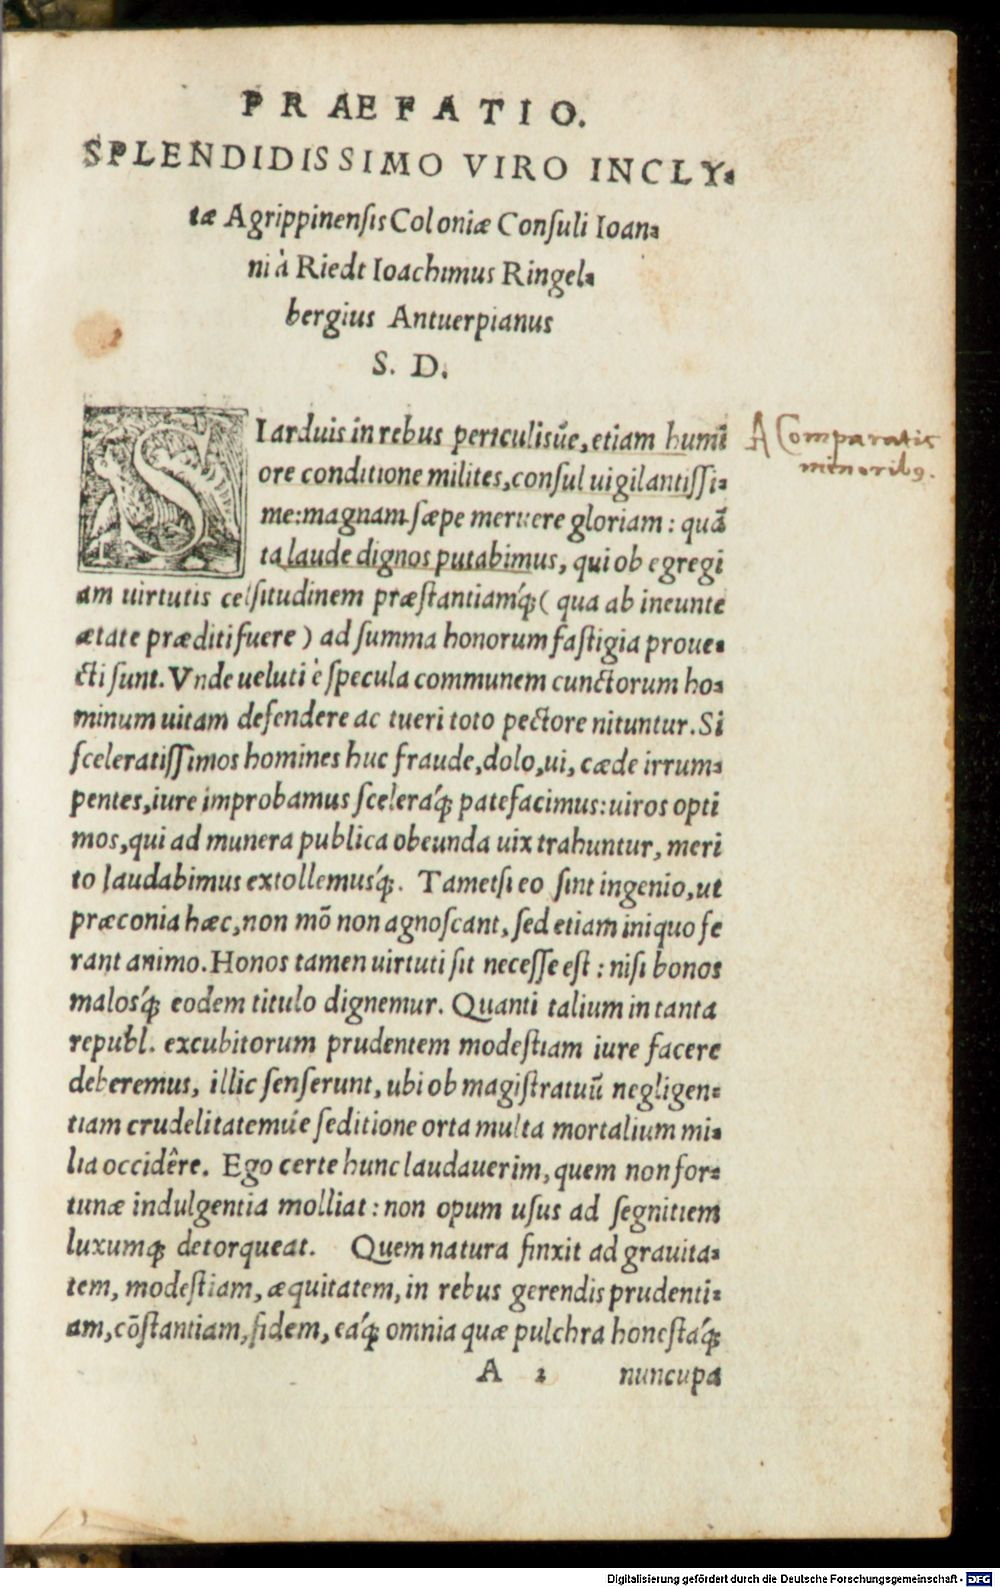 PRAEFATIO.
SPLENDIDISSIMO VIRO INCLY-
tæ Agrippinensis Coloniæ Consuli Ioan-
ni à Riedt Ioachimus Ringel-
bergius Antuerpianus
S. D.
SI arduis in rebus periculisúe, etiam humi
ore conditione milites, consul uigilantissi-
me: magnam sæpe meruere gloriam: quã
ta laude dignos putabimus, qui ob egregi
am uirtutis celsitudinem præstantiamq́; ( qua ab ineunte
ætate præditi fuere ) ad summa honorum fastigia proue-
cti sunt. Vnde ueluti è specula communem cunctorum ho-
minum uitam defendere ac tueri toto pectore nituntur. Si
sceleratissimos homines huc fraude, dolo, ui, cæde irrum-
pentes, iure improbamus sceleráq; patefacimus: uiros opti
mos, qui ad munera publica obeunda uix trahuntur, meri
to laudabimus extollemusq́;. Tametsi eo sint ingenio, ut
præconia hæc, non mõ non agnoscant, sed etiam iniquo fe
rant animo. Honos tamen uirtuti sit necesse est: nisi bonos
malosq́; eodem titulo dignemur. Quanti talium in tanta
republ. excubitorum prudentem modestiam iure facere
deberemus, illic senserunt, ubi ob magistratuũ negligen-
tiam crudelitatemúe seditione orta multa mortalium mi-
lia occidêre. Ego certe hunc laudauerim, quem non for-
tunæ indulgentia molliat: non opum usus ad segnitiem
luxumq; detorqueat. Quem natura finxit ad grauita-
tem, modestiam, æquitatem, in rebus gerendis prudenti-
am, cõstantiam, fidem, eáq; omnia quæ pulchra honestáq;
A 2 nuncupa
A Comparatis
minoribꝯ.
Digitalisierung gefördert durch die Deutsche Forschungsgemeinschaft - DFG